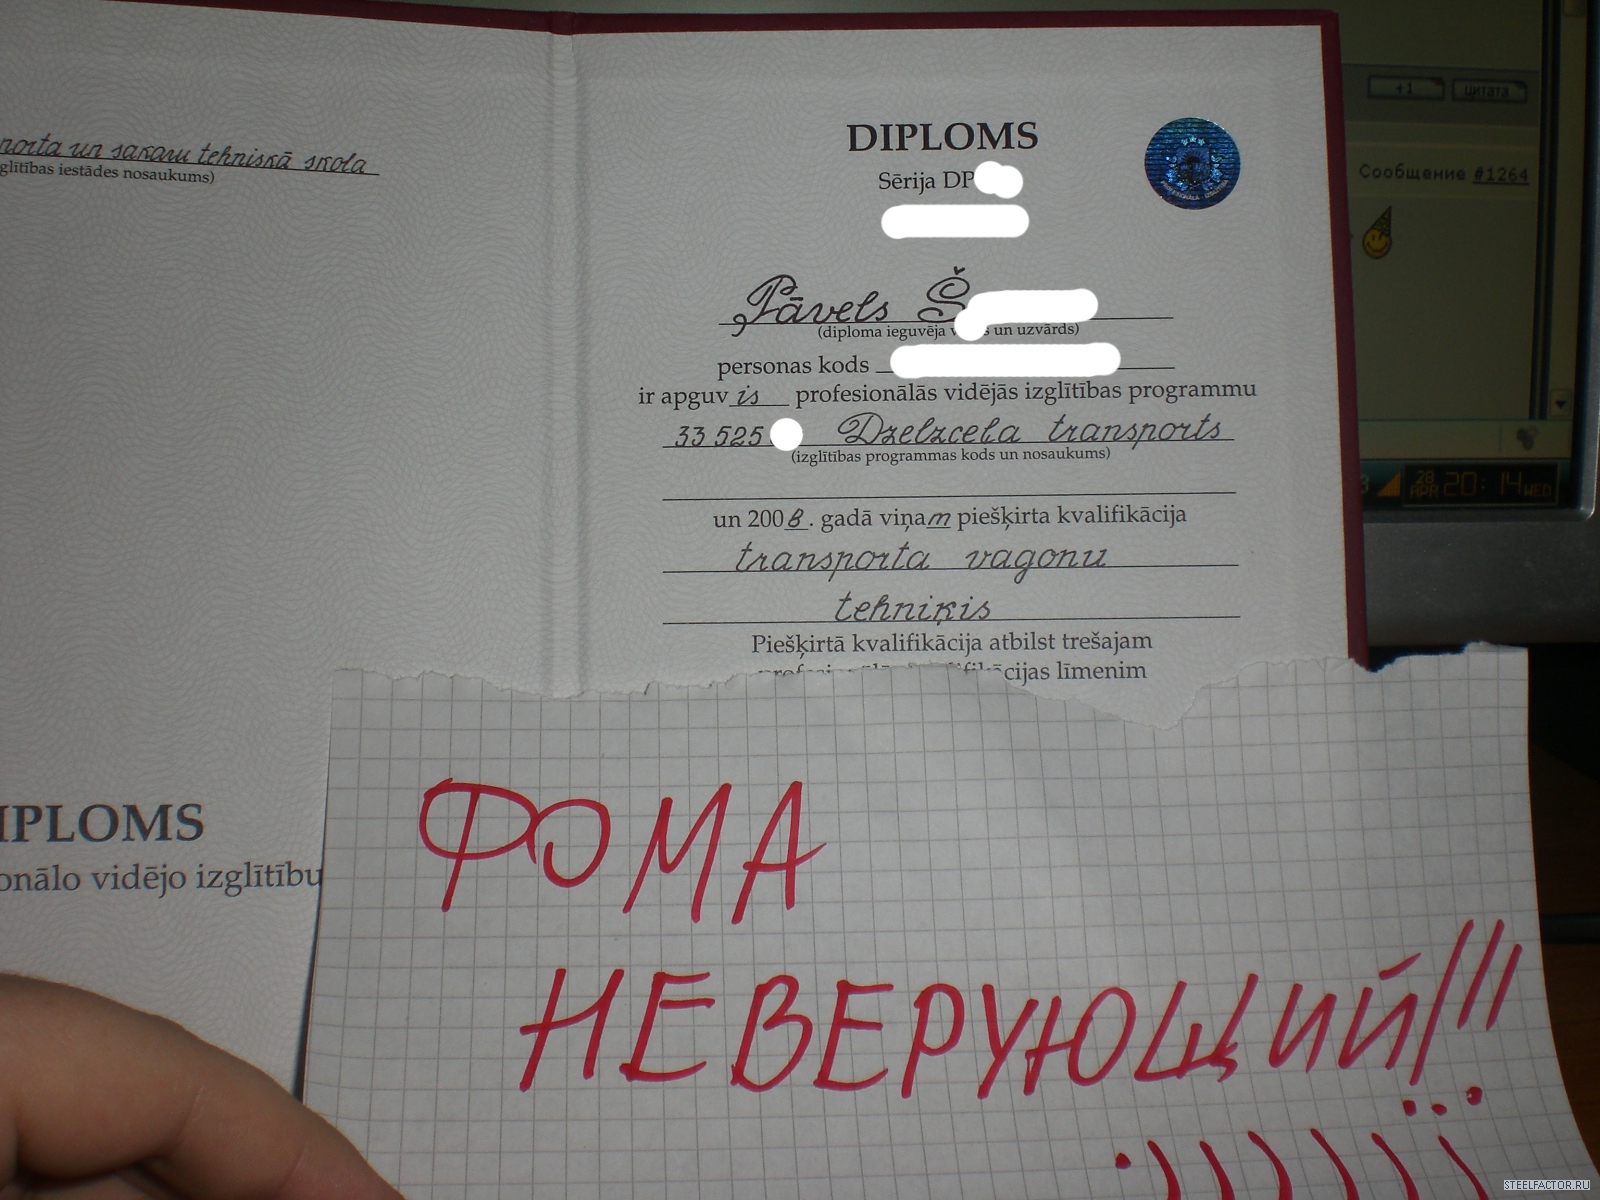 porta un sakaru tehniskā skola
glītības iestādes nosaukums)
IPLOMS
onālo vidējo izglītību
DIPLOMS
Sērija DP
Pāvels Š
(diploma ieguvēja un uzvārds)
personas kods
ir apguvis profesionālās vidējās izglītības programmu
33 525 Dzelzceļa transports
(izglītības programmas kods un nosaukums)
un 2008. gadā viņam piešķirta kvalifikācija
transporta vagonu
tehniķis
Piešķirtā kvalifikācija atbilst trešajam
cijas līmenim
+1 цитата
Сообщение #1264
28 APR 20:14 WED
ФОМА
НЕВЕРУЮЩИЙ!!!
:)))))
STEELFACTOR.RU